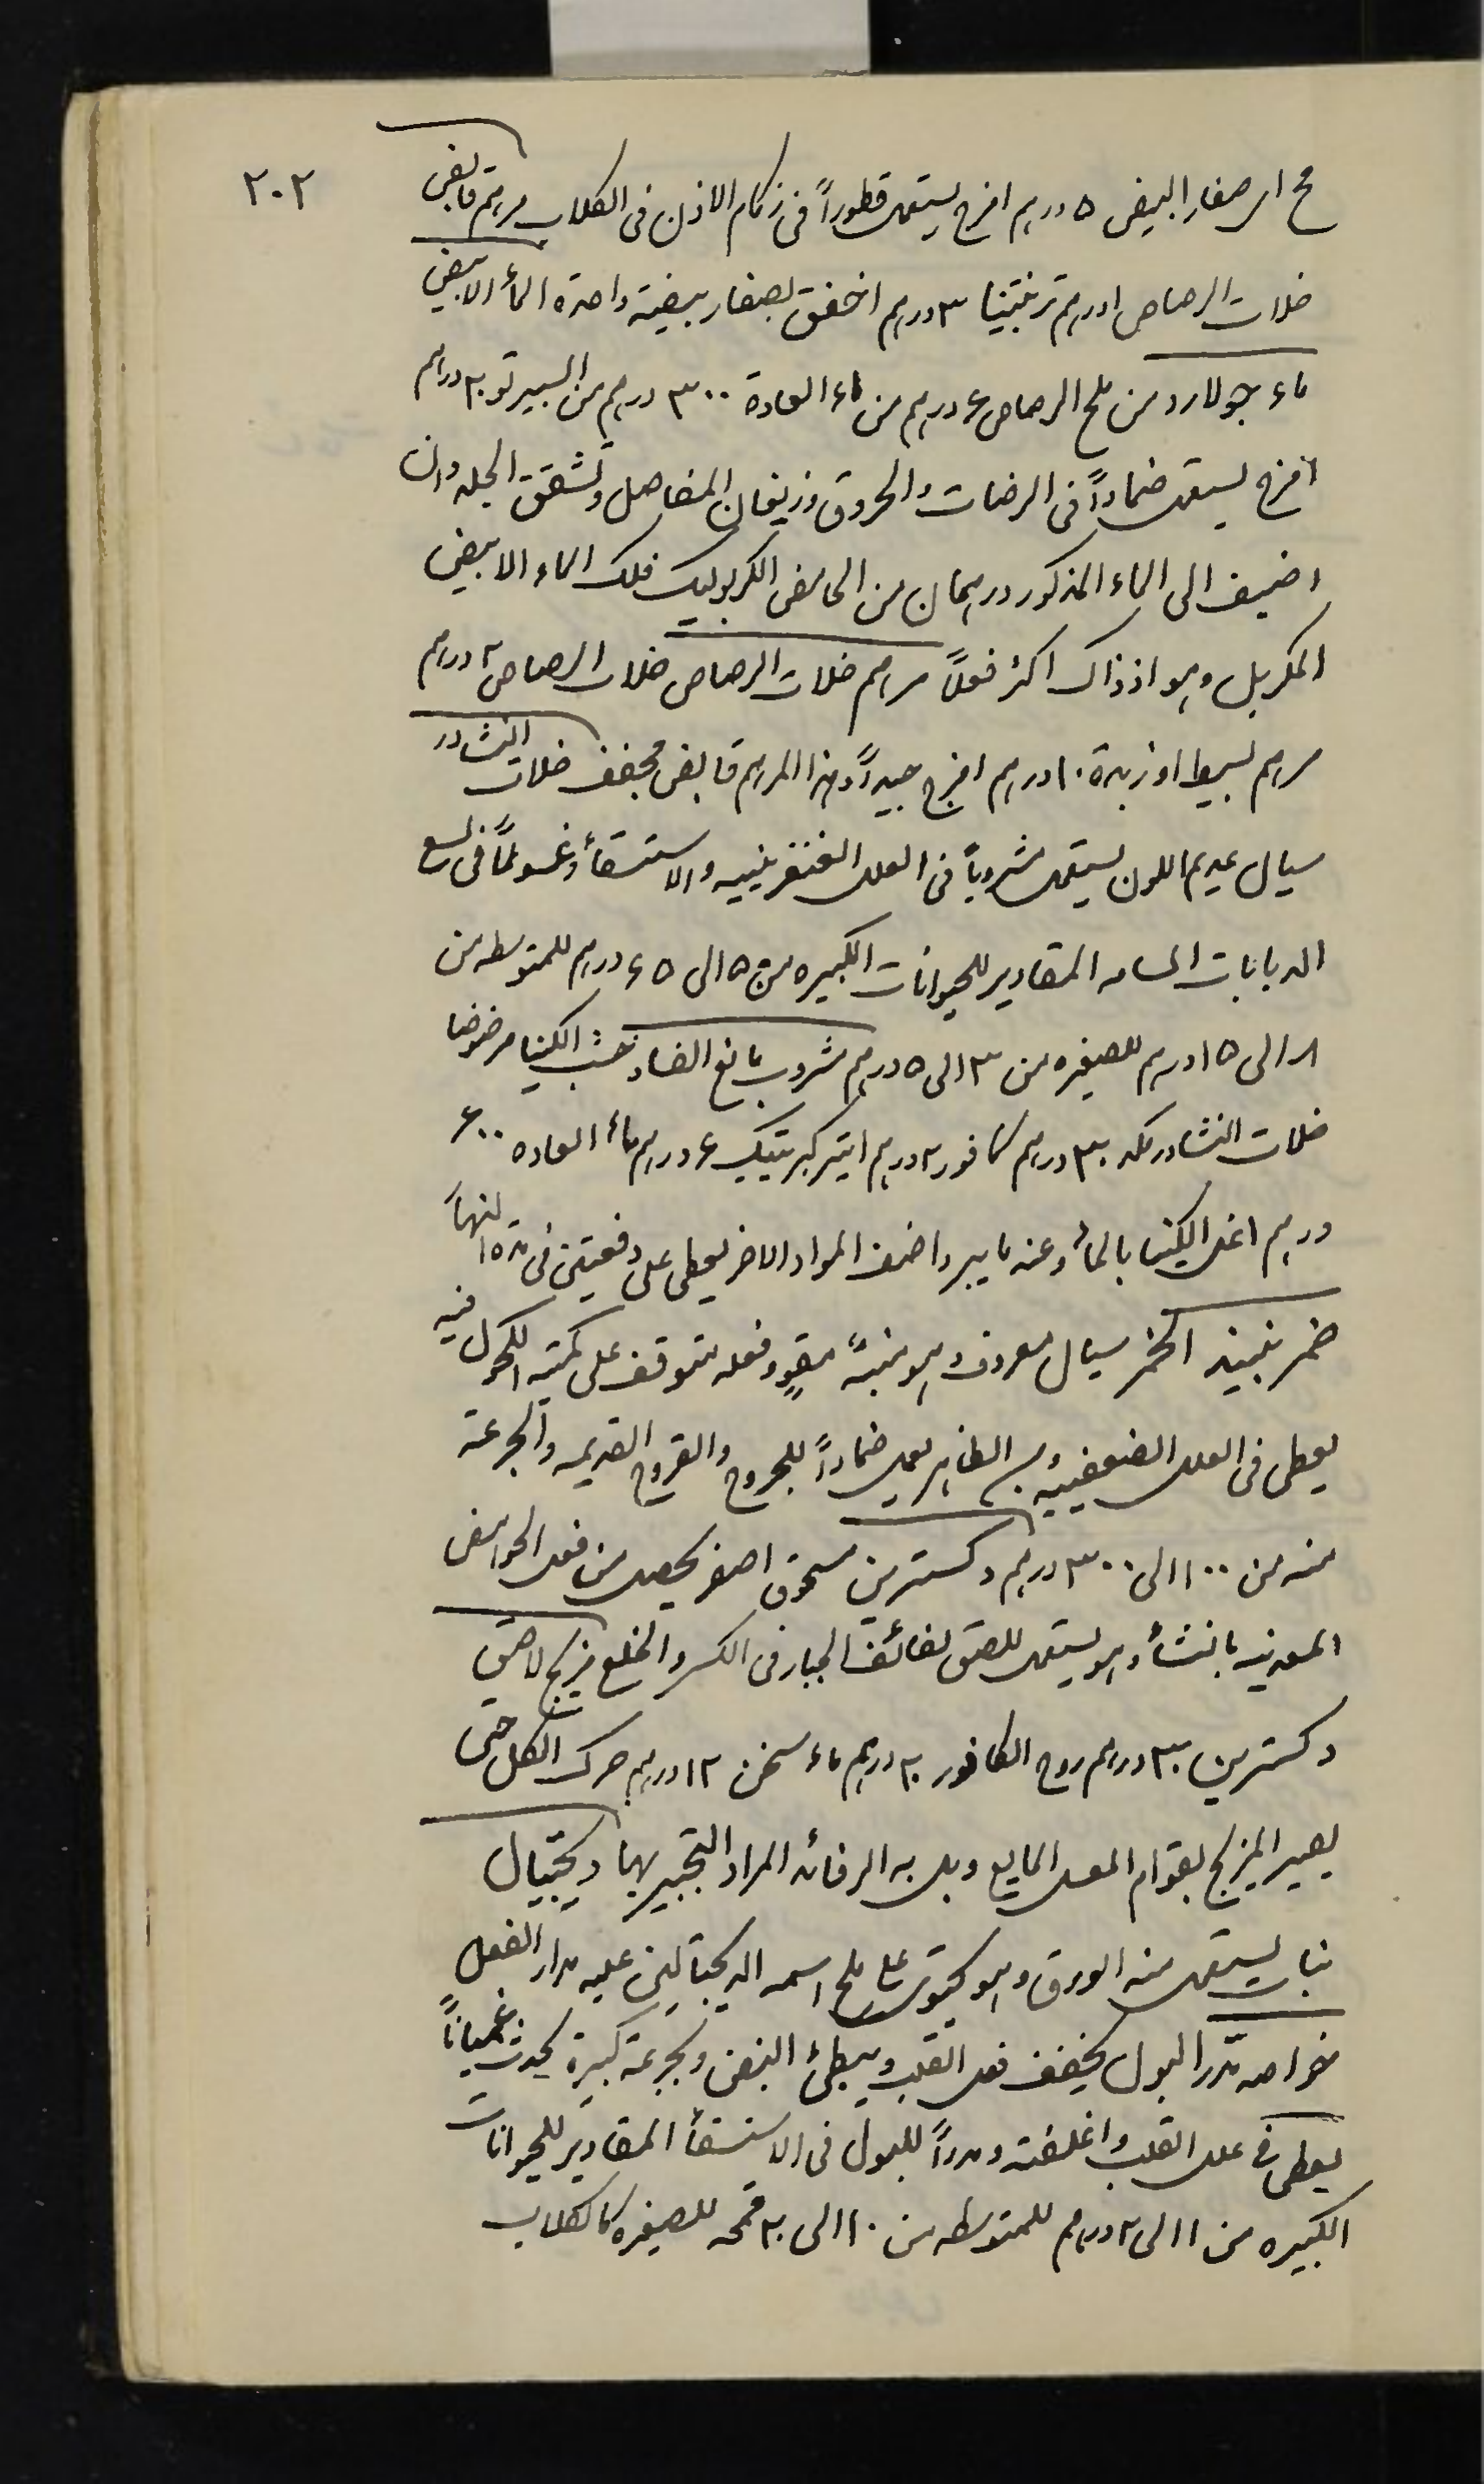 ٢٠٢
مح اى صفار البيض ٥ درهم امزج يستعمل قطوراً فى زكام الاذن فى الكلاب مرهم قابض
خلات الرصاص ا درهم تربنتينا ٣ درهم اخفق بصفار بيضة واحدة الماء الابيض
ماء جولارد من ملح الرصاص ٤ درهم من ماء العادة ٣٠٠ درهم من السبيرتو ٢٠ درهم
امزج يستعمل ضماداً فى الرضات والحروق وزيغان المفاصل وتشقق الجلد وان
اضيف الى الماء المذكور درهمان من الحامض الكربوليك فلك الماء الابيض
المكربل وهو اذ ذاك اكثر فعلاً مرهم خلات الرصاص خلات الرصاص ٢ درهم
مرهم بسيط او زبدة ١٠ درهم امزج جيداً وهذا المرهم قابض مجفف خلات النشادر
سيال عديم اللون يستعمل مشروباً فى العلل الغنغرينيه والاستسقأ وغسولاً فى لسع
الدبابات السامه المقادير للحيوانات الكبيره من ١٥ الى ٤٥ درهم للمتوسطه من
الى ١٥ درهم للصغيره من ٣ الى ٥ درهم مشروب مانع الفساد خشب الكينا مرضوضا
خلات النشادر ٣٠ درهم كافور ٢ درهم ايتير كبريتيك ٤ درهم مأ العاده ٤٠٠
درهم اغل الكينا بالمأ وعند ما يبرد اضف المواد الاخر يعطى على دفعتين فى مدة النهاً
خمر نبيذ الخمر سيال معروف وهو منبهٌ مقوٍ وفعله يتوقف على كمية الكحول فيه
يعطى فى العلل الضعفييه ومن الظاهر يعمل ضماداً للجروح والقروح القديمه والجرعة
منه من ١٠٠ الى ٣٠٠ درهم دكسترين مسحوق اصفر يحصل من فعل الحوامض
المعدنيه بالنشأ وهو يستعمل للصق لفائف الجبار فى الكسر والخلع مزيج لاصق
دكسترين ٣٠ درهم روح الكافور ٢٠ درهم ماء سخن ١٢ درهم حرك الكل حتى
يصير المزيج بقوام العسل المايع وبل به الرفائد المراد التجبير بها ديجيتال
نبات يستعمل منه الورق وهو يحتوى على ملح اسمه الديجيتالين عليه مدار الفعل
خواصه مدّر البول يخفف فعل القلب ويبطئ النبض وبجرعة كبيرة يحدث غثياناً
يعطى فى علل القلب واغلفته ومدراً للبول فى الاستسقأ المقادير للحيوانات
الكبيره من ١ الى ٢ درهم للمتوسطه من ١٠ الى ٢٠ قمحه للصغيره كالكلاب